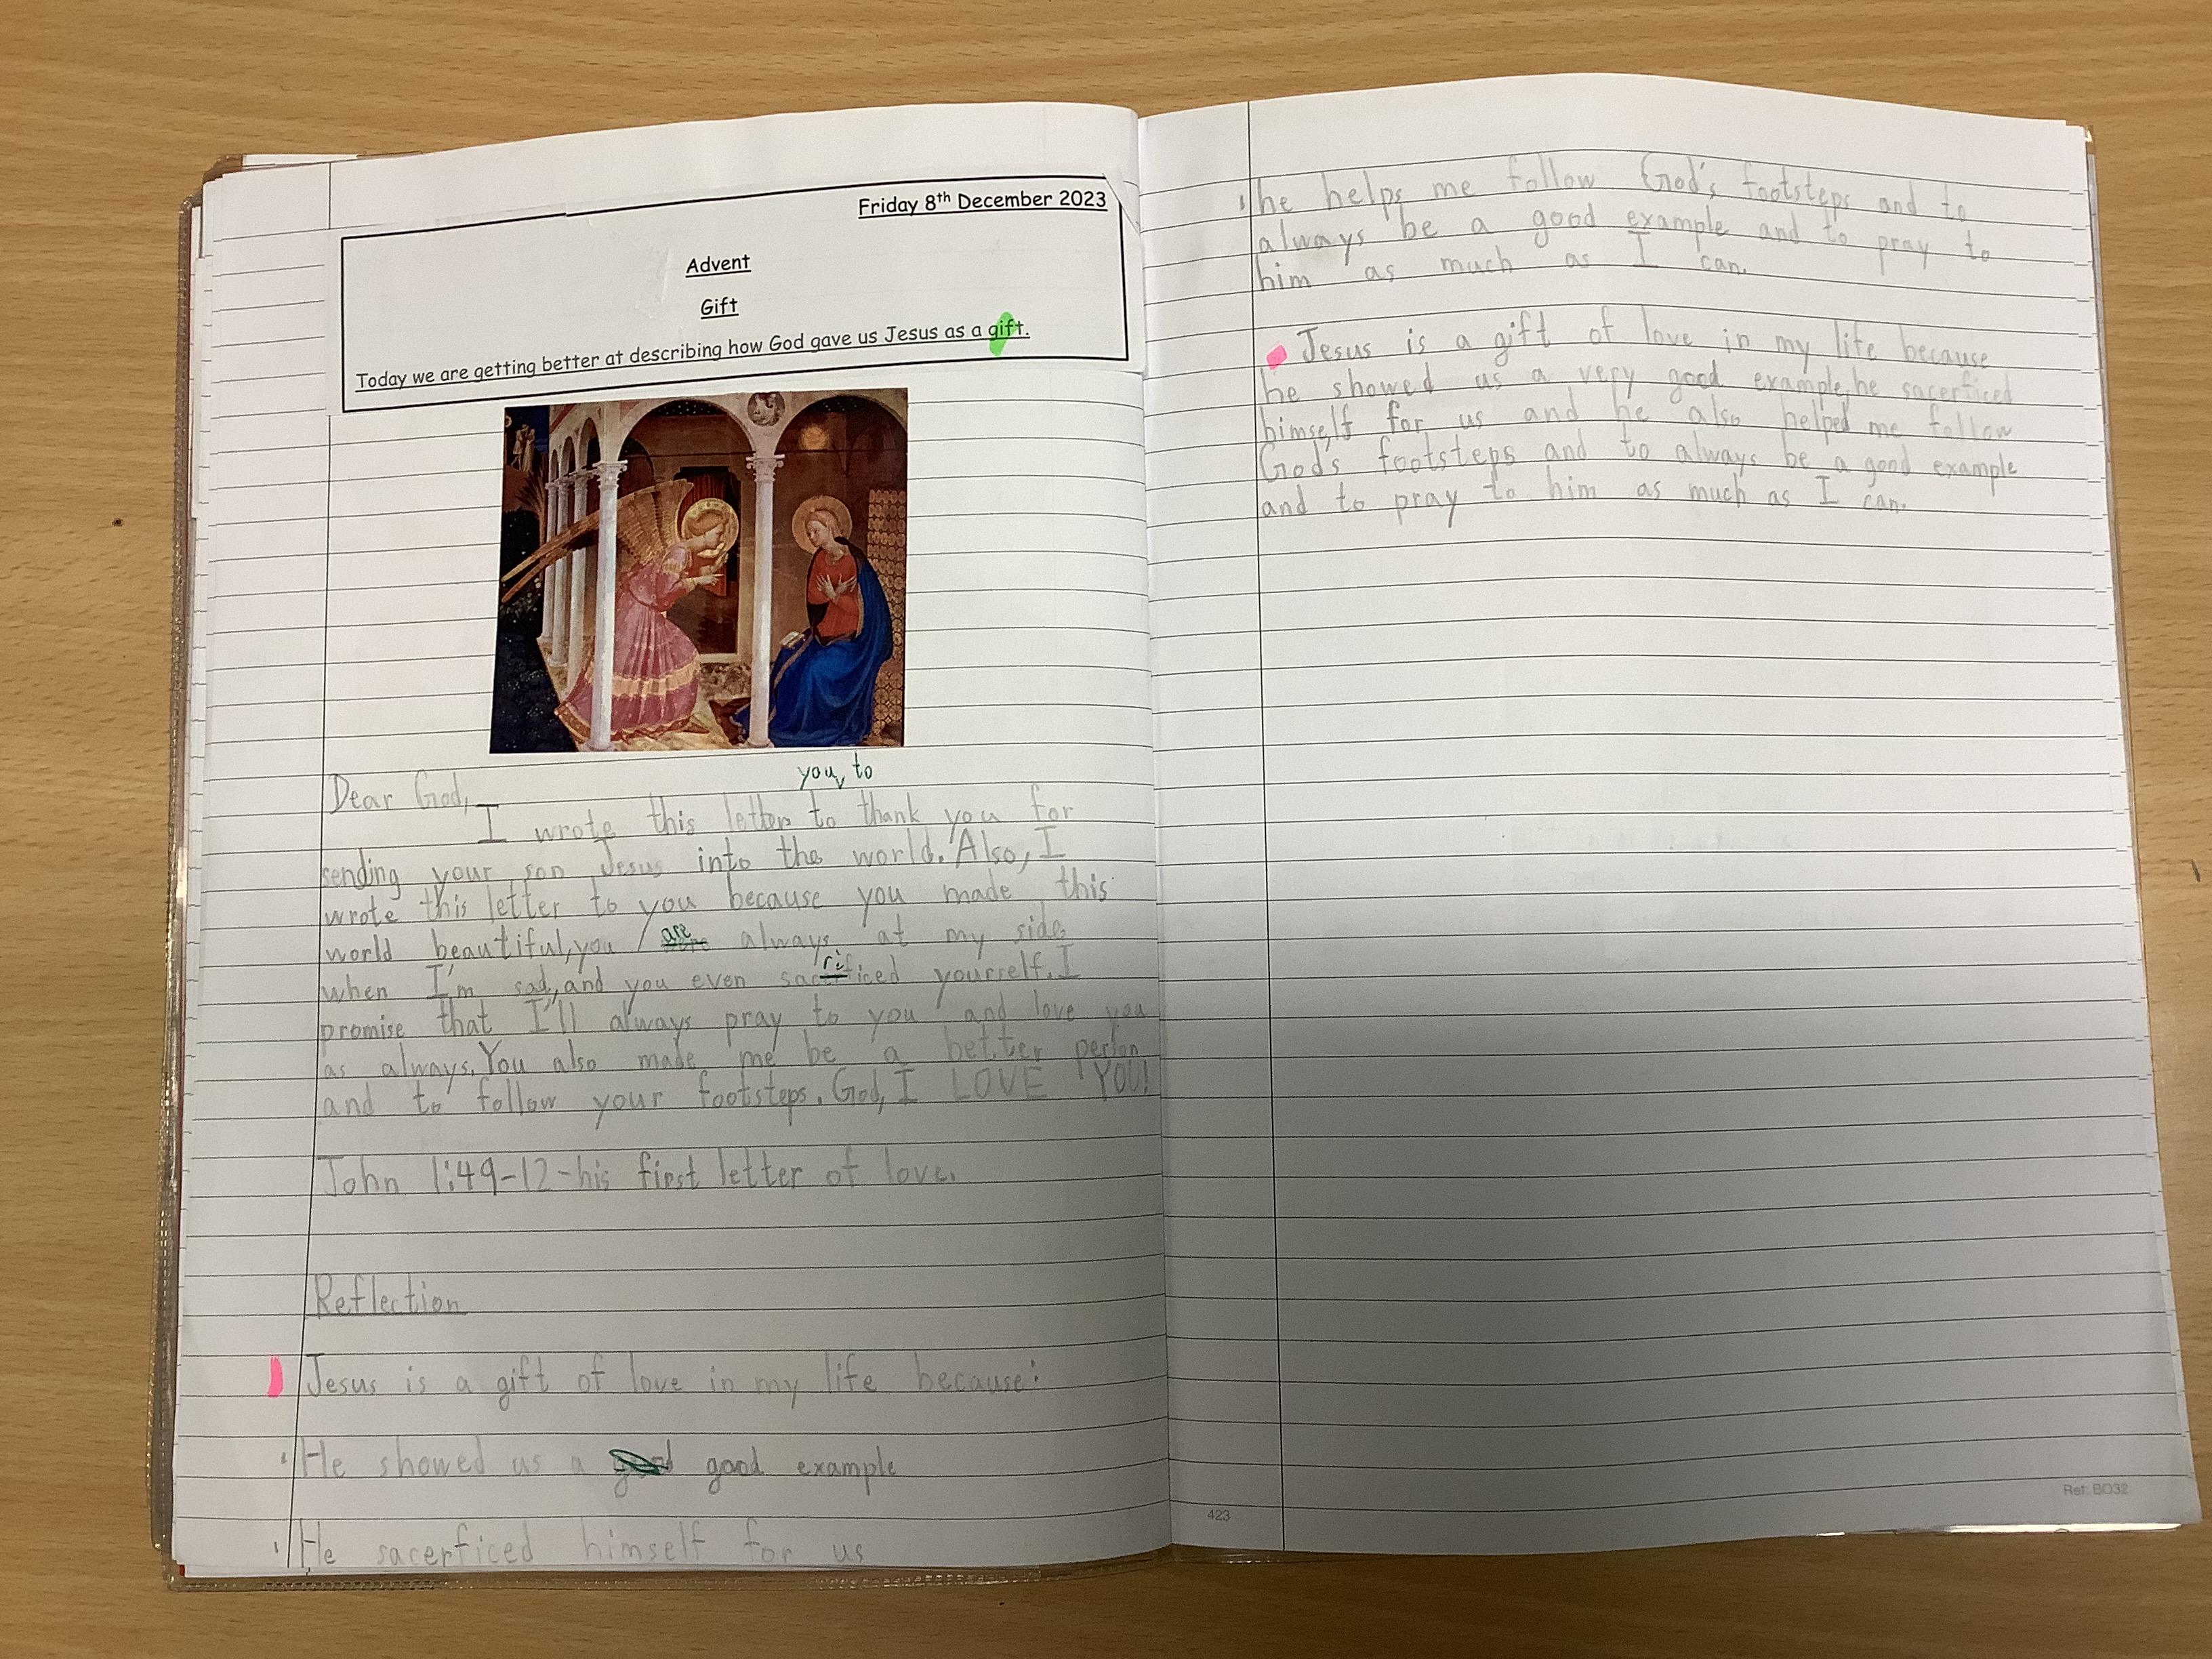 Friday 8th December 2023
Advent
Gift
Today we are getting better at describing how God gave us Jesus as a gift.
Dear God,
you, to
I wrote this letter to thank you for
sending your son Jesus into the world. Also, I
wrote this letter to you because you made this
world beautiful, you are always at my side
when I'm sad, and you even sacrificed yourself. I
promise that I'll always pray to you and love you
as always. You also made me be a better person
and to follow your footsteps. God, I LOVE YOU!
John 1:49-12-his first letter of love.
Reflection
Jesus is a gift of love in my life because:
He showed us a good example
He sacerficed himself for us
423
he helps me follow God's footsteps and to
always be a good example and to pray to
him as much as I can.
Jesus is a gift of love in my life because
he showed us a very good example, he sacerficed
himself for us and he also helped me follow
God's footsteps and to always be a good example
and to pray to him as much as I can.
Ref: BO32